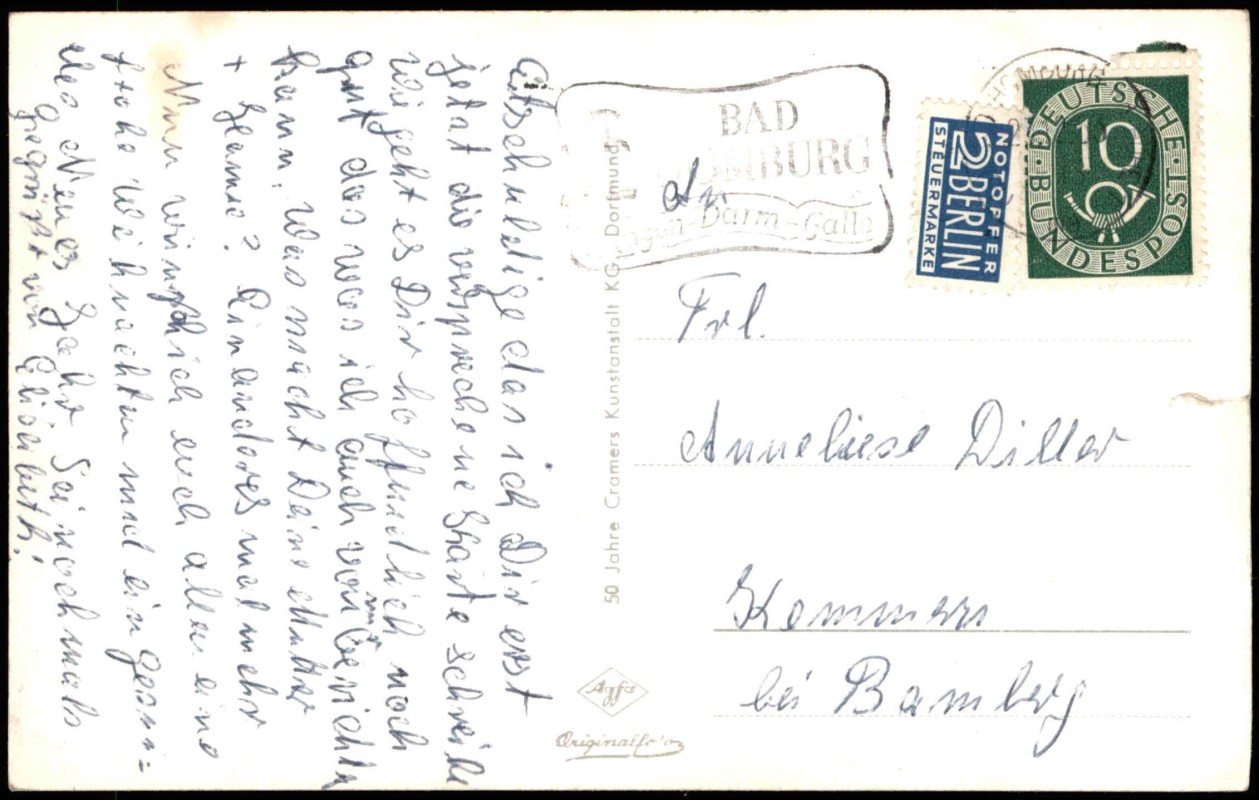 Entschuldige das ich Dir erst
jetzt die versprochene Kharte schreibe
wie geht es Dir hoffendlich noch
gut das was ich auch von mir berichten
kann. Was macht Deine Mutter
+ Hanne? Ein anderes mal mehr
Nun wünsch ich euch allen eine
frohe Weihnachten und ein gesun=
des Neues Jahr Sei nochmals
gegrüßt von Elisabeth!
50 Jahre Cramers Kunstanstalt KG, Dortmund
Agfa
Originalfoto
BAD
HOMBURG
Magen-Darm-Galle
NOTOPFER
2 BERLIN
STEUERMARKE
DEUTSCHE
10
BUNDESPOST
An
Frl.
Anneliese Diller
Kemmern
bei Bamberg